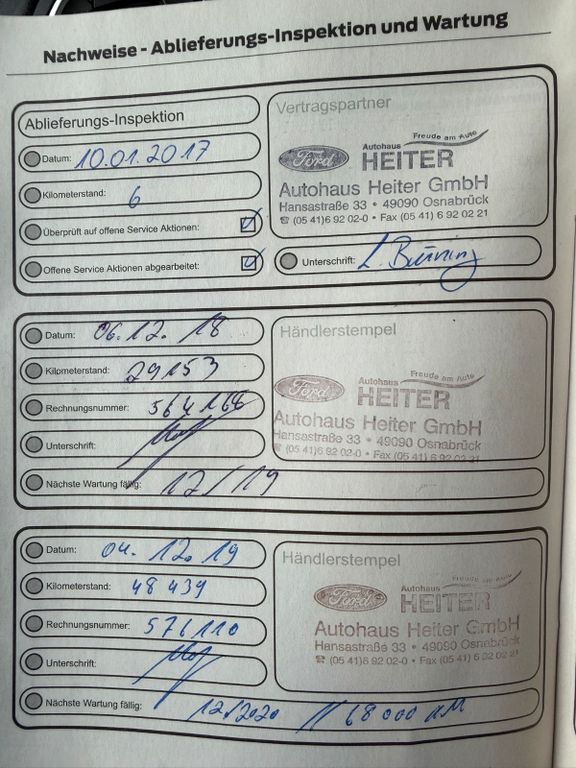 Nachweise - Ablieferungs-Inspektion und Wartung
Ablieferungs-Inspektion
Datum: 10.01.2017
Kilometerstand: 6
Überprüft auf offene Service Aktionen:
Offene Service Aktionen abgearbeitet:
Vertragspartner
Freude am Auto
Ford Autohaus
HEITER
Autohaus Heiter GmbH
Hansastraße 33 • 49090 Osnabrück
☎ (05 41) 6 92 02-0 • Fax (05 41) 6 92 02 21
Unterschrift: L.
Datum: 06.12.18
Kilometerstand: 29153
Rechnungsnummer: 564166
Unterschrift:
Nächste Wartung fällig: 12/19
Händlerstempel
Freude am Auto
Ford Autohaus
HEITER
Autohaus Heiter GmbH
Hansastraße 33 • 49090 Osnabrück
(05 41) 6 92 02-0 • Fax (05 41) 6 92 02 21
Datum: 04.12.19
Kilometerstand: 48439
Rechnungsnummer: 576110
Unterschrift:
Nächste Wartung fällig: 12/2020 // 68000 KM
Händlerstempel
Freude am Auto
Ford Autohaus
HEITER
Autohaus Heiter GmbH
Hansastraße 33 • 49090 Osnabrück
☎ (05 41) 6 92 02-0 • Fax (05 41) 6 92 02 21